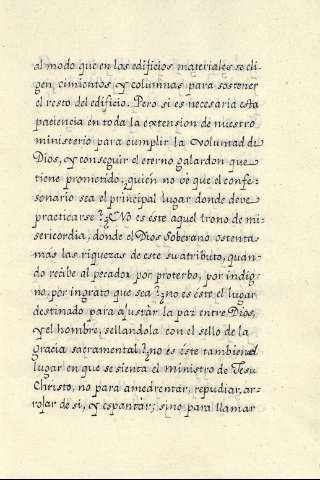 al modo que en los edificios materiales se eli-
gen cimientos y columnas para sostener
el resto del edificio. Pero si es necesaria esta
paciencia en toda la extension de nuestro
ministerio para cumplir la voluntad de
Dios, y conseguir el eterno galardon que
tiene prometido; ¿quién no ve que el confe-
sonario sea el principal lugar donde deve
practicarse? ¿No es éste aquel trono de mi-
sericordia, donde el Dios Soberano ostenta
más las riquezas de este su atributo, quan-
do recibe al pecador, por proterbo, por indig-
no, por ingrato que sea? ¿no es éste el lugar
destinado para ajustar la paz entre Dios,
y el hombre, sellandola con el sello de la
gracia sacramental? ¿no es éste tambien el
lugar en que se sienta el ministro de Jesu
Christo, no para amedrentar, repudiar, ar-
rojar de sí, y espantar; sino para llamar